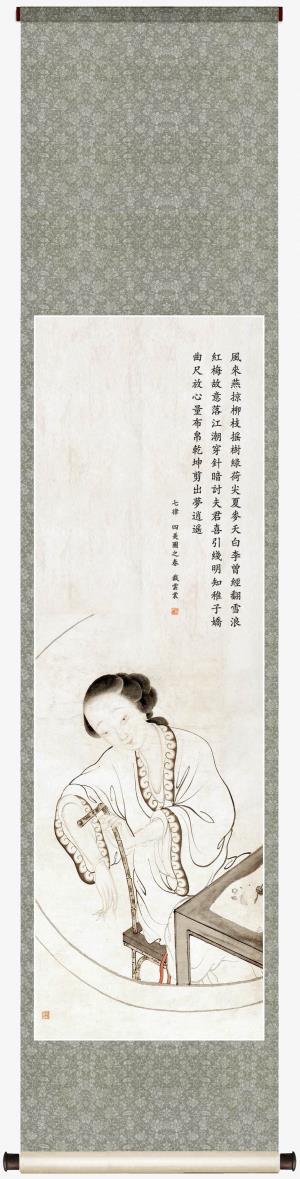 風來燕掠柳枝搖樹綠荷尖夏麥天白李曾經翻雪浪
紅梅故意落江潮穿針暗討夫君喜引綫明知稚子嬌
曲尺放心量布帛乾坤剪出夢逍遙
七律 四美圖之春 裁雲裳